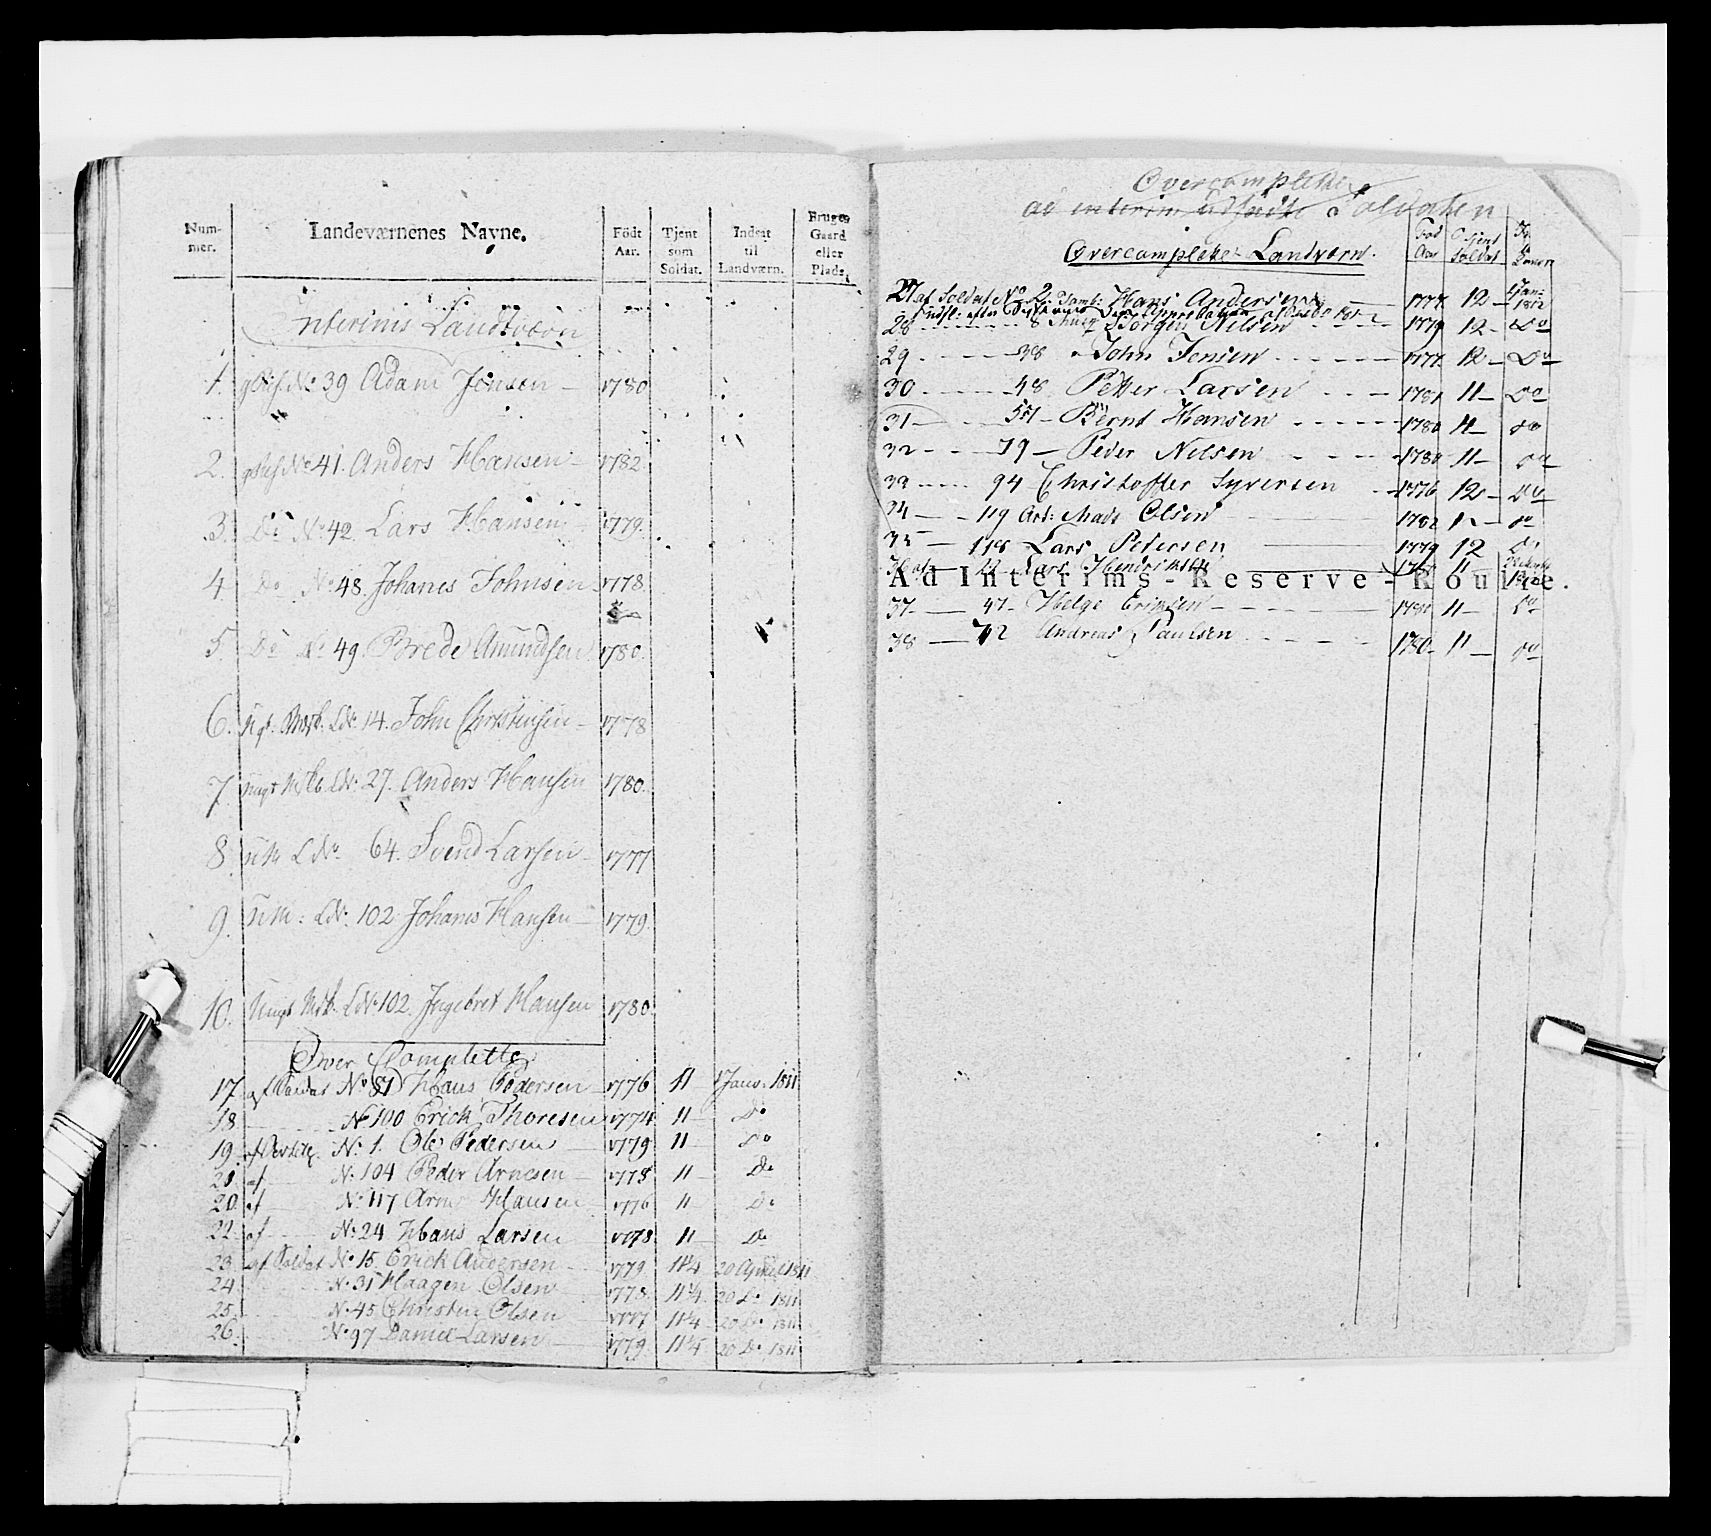 Num-
mer.
Landeværnenes Navne.
Födt
Aar.
Tjent
som
Soldat.
Indsat
til
Landværn.
Bruger
Gaard
eller
Plads.
Interims Landværn
1. No 39 Adam Jensen – 1780
2. No 41. Anders Hansen – 1782.
3. Do No 42 Lars Hansen – 1779.
4. Do No 48. Johanes Johnsen 1778.
5. Do No 49 Brede Amundsen 1780.
6. LNo 14. John Christensen – 1778
7. LNo 27. Anders Hansen 1780.
8. LNo 64. Svend Larsen – 1777
9. LNo 102 Johanes Hansen – 1779
10. LNo 102. Ingebret Hansen 1780.
Over Complette
17. af Soldat No 81 Hans Pedersen 1776 11 1 Janv. 1811
18. No 100 Erick Thoresen 1774 11 – Do
19. No 1. Ole Pedersen 1779 11 – Do
21. af No 104 Peder Arnesen – 1778 11 – Do
20. af No 117 Arne Hansen – 1776 11 Do
22. af No 24 Hans Larsen 1778 11 – Do
23. af Soldat No 15 Erick Andersen – 1779 11 1/4 20 April 1811
24. No 31 Haagen Olsen 1778 11 1/4 20 Do 1811
25. No 45 Olsen 1777 11 1/4 20 Do 1811
26. No 97 Daniel Larsen 1779 11 1/4 20 Do 1811
Overcomplette
ad interim Soldater
Overcomplette Landværn.
Fød
Aar
Tjent
Soldat
27 af Soldat No 2 Hans Andersen 1777 12 – 1 Jan: 1812
28 8 Jørgen Nilsen 1779 12 – Do
29 38 John Jensen 1777 12 – Do
30 48 Petter Larsen 1781 11 – Do
31 57 – Bernt Hansen 1780 11 – Do
32 79 – Peder Nilsen 1780 11 – Do
33 94 Christoffer Syversen 1776 12 – Do
34 – 119 Mads Olsen 1782 Do
35 – 118 Lars Petersen 1779 12 Do
36 22 Lars Hendriksen 11
Ad Interims-Reserve-Roulle.
37 – 47 – Helge Eriksen – 11 – Do
38 – 72 Andreas Paulsen 1780 – 11 – Do